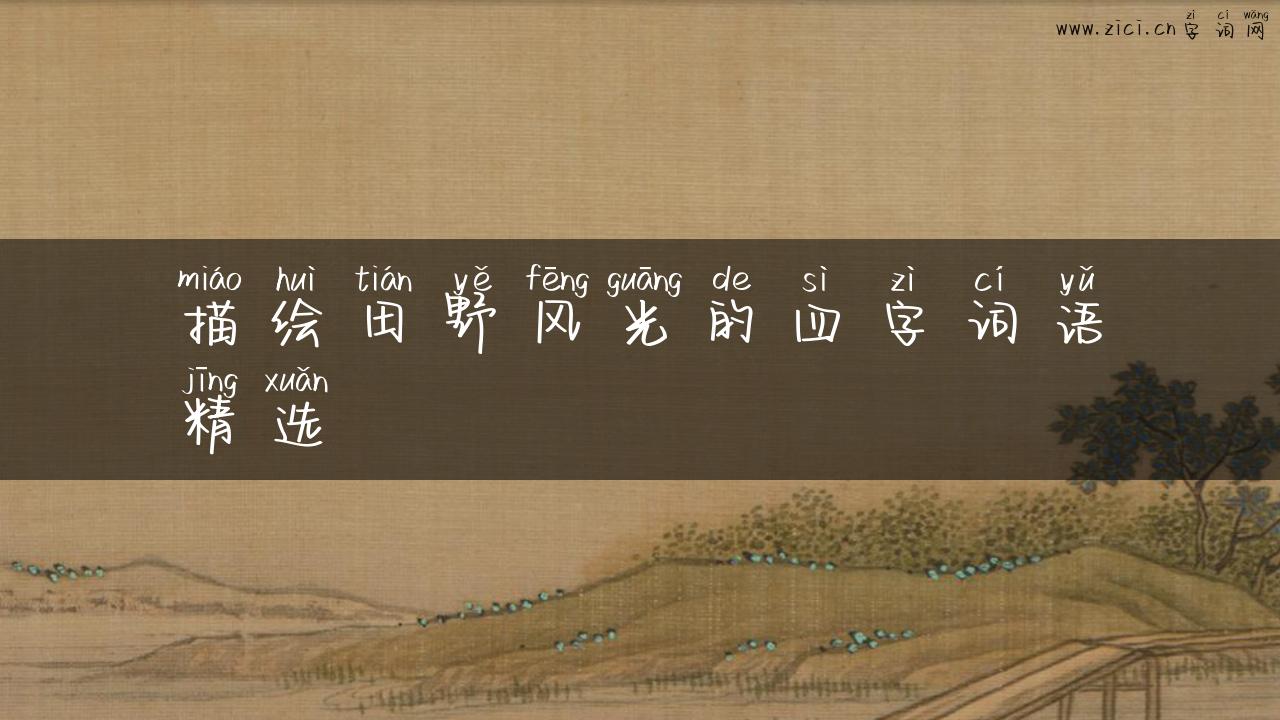 zì cí wǎng
www.zici.cn 字词网
miáo huì tián yě fēng guāng de sì zì cí yǔ
描绘田野风光的四字词语
jīng xuǎn
精选